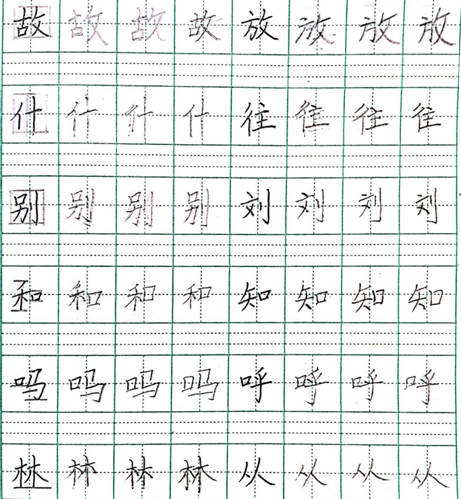 故故故故放放放放
什什什什往往往往
别别别别刘刘刘刘
和和和和知知知知
吗吗吗吗呼呼呼呼
林林林林从从从从